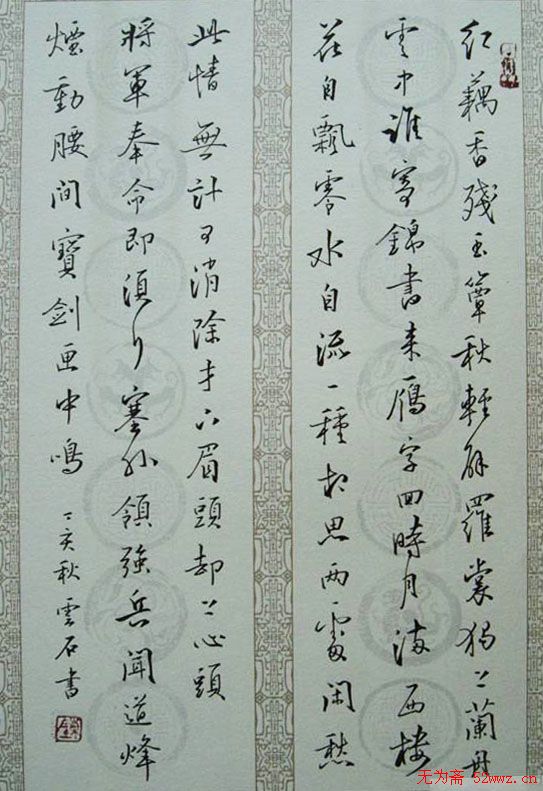 红藕香殘玉簟秋輕解羅裳独上蘭舟
雲中誰寄錦書来雁字回時月滿西樓
花自飄零水自流一種相思两處閑愁
此情無計可消除才下眉頭却上心頭
将軍奉命即須行塞外領強兵聞道烽
煙動腰间寶剑画中鳴 丁亥秋雲石書
无为斋 52wwz.cn